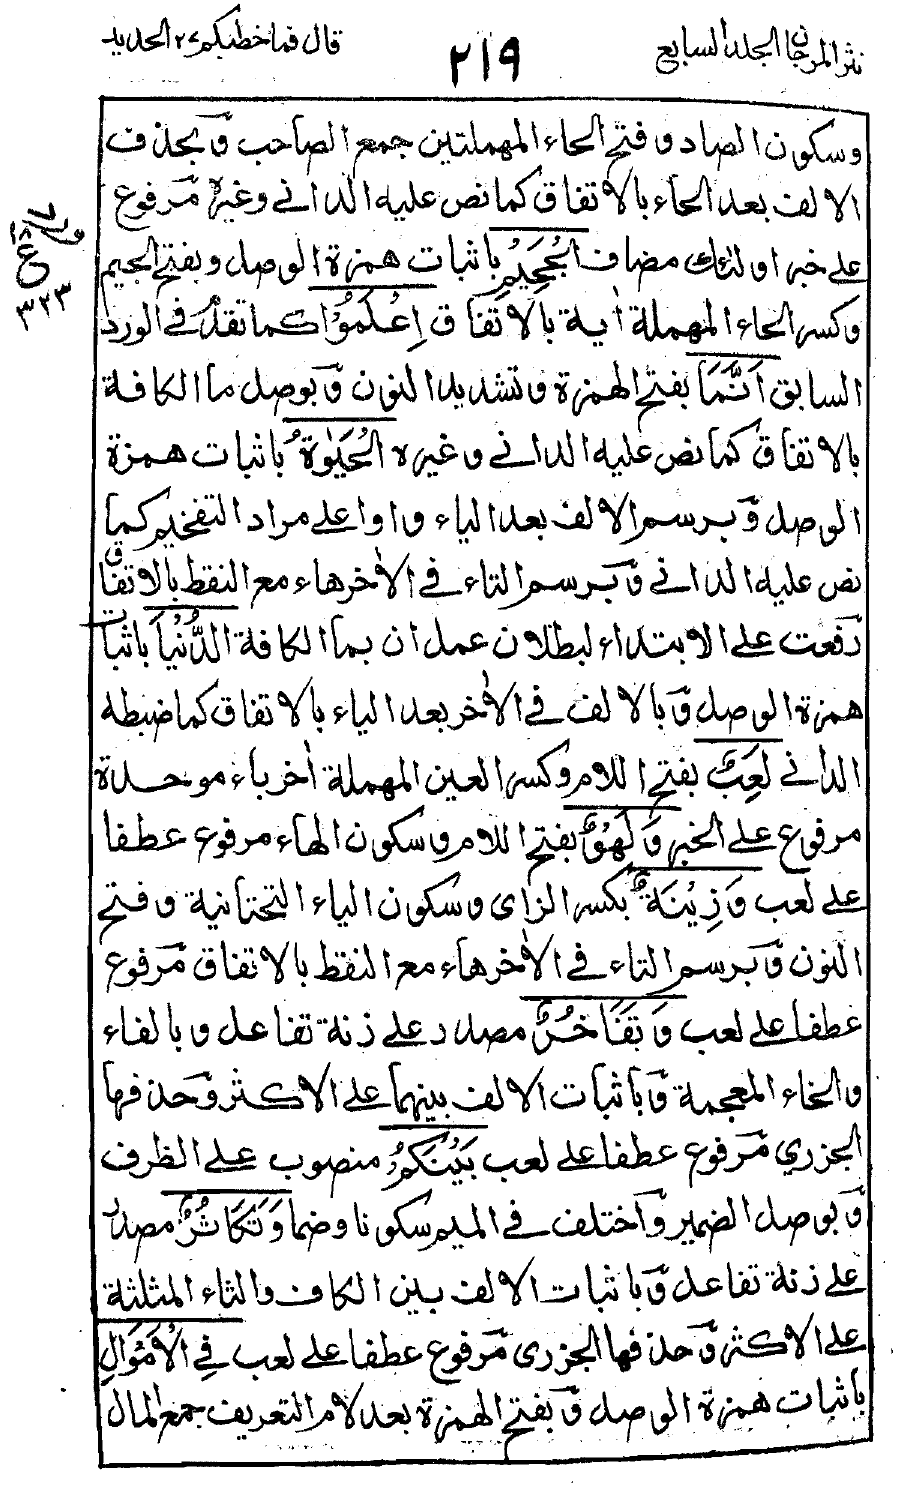 نثر المرجان المجلد السابع
٢١٩
قال فما خطبكم ٢٧ الحديد
وسكون الصاد وفتح الحاء المهملتين جمع الصاحب وّبحذف
الالف بعد الحاء بالاتفاق كما نص عليه الداني وغيره مّرفوع
على خبر اولئك مضاف الْجَحِيْمِ باثبات همزة الوصل وبفتح الجيم
وكسر الحاء المهملة اٰية بالاتفاق اِعْلَمُوْٓا كما تقدم في الورد
السابق اَنَّمَا بفتح الهمزة وتشديد النون وّبوصل ما الكافة
بالاتفاق كما نص عليه الداني وغيره الْحَيٰوةُ باثبات همزة
الوصل وّبرسم الالف بعد الياء واوا على مراد التفخيم كما
نص عليه الداني وّبرسم التاء في الاٰخر هاء مع النقط بالاتفاق
رّفعت على الابتداء لبطلان عمل ان بما الكافة الدُّنْيَا باثبات
همزة الوصل وّبالالف في الاٰخر بعد الياء بالاتفاق كما ضبطه
الداني لَعِبٌ بفتح اللام وكسر العين المهملة اٰخر باء موحدة
مرفوع على الخبر وَّلَهْوٌ بفتح اللام وسكون الهاء مرفوع عطفا
على لعب وَّزِيْنَةٌ بكسر الزاى وسكون الياء التحتانية وفتح
النون وّبرسم التاء في الاٰخر هاء مع النقط بالاتفاق مّرفوع
عطفا على لعب وَّتَفَاخُرٌۢ مصدر على زنة تفاعل وبالفاء
والخاء المعجمة وّباثبات الالف بينهما على الاكثر وّحذفها
الجزري مّرفوع عطفا على لعب بَيْنَكُمْ منصوب على الظرف
وّبوصل الضمير وّاختلف في الميم سكونا وضما وَتَكَاثُرٌ مصدر
على زنة تفاعل وّباثبات الالف بين الكاف والثاء المثلثة
على الاكثر وّحذفها الجزرى مّرفوع عطفا على لعب فِي الْاَمْوَالِ
باثبات همزة الوصل وّبفتح الهمزة بعد لام التعريف جمع المال